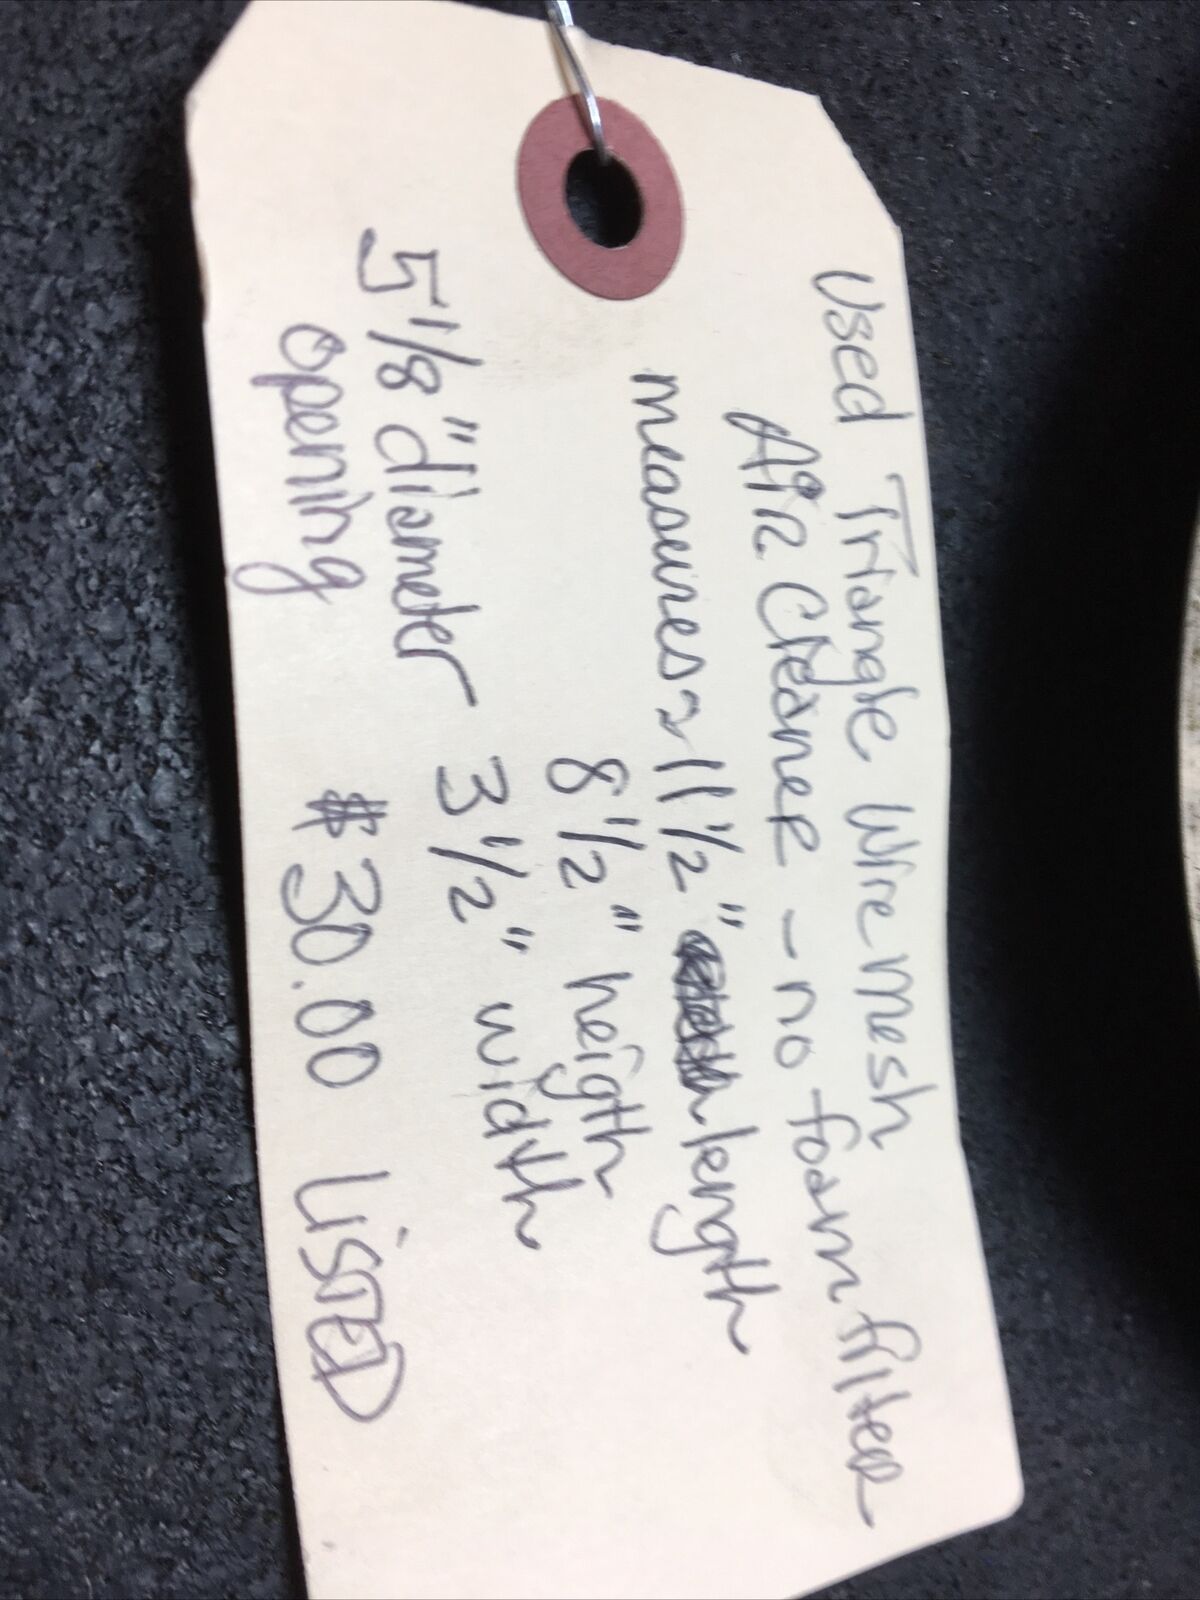 Used Triangle Wire mesh
AiR Cleaner - no foam filter
measures ~ 11 1/2" length
8 1/2" heigth
5 1/8" diameter 3 1/2" width
opening
$30.00 LiSTED